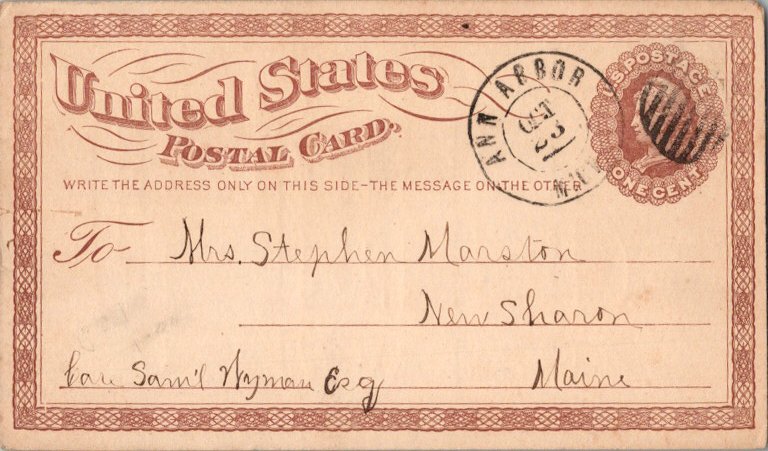 United States
POSTAL CARD.
WRITE THE ADDRESS ONLY ON THIS SIDE-THE MESSAGE ON THE OTHER
ANN ARBOR
OCT
23
MICH
U.S. POSTAGE
ONE CENT
To Mrs. Stephen Marston
New Sharon
Care Sam'l Wyman Esq Maine